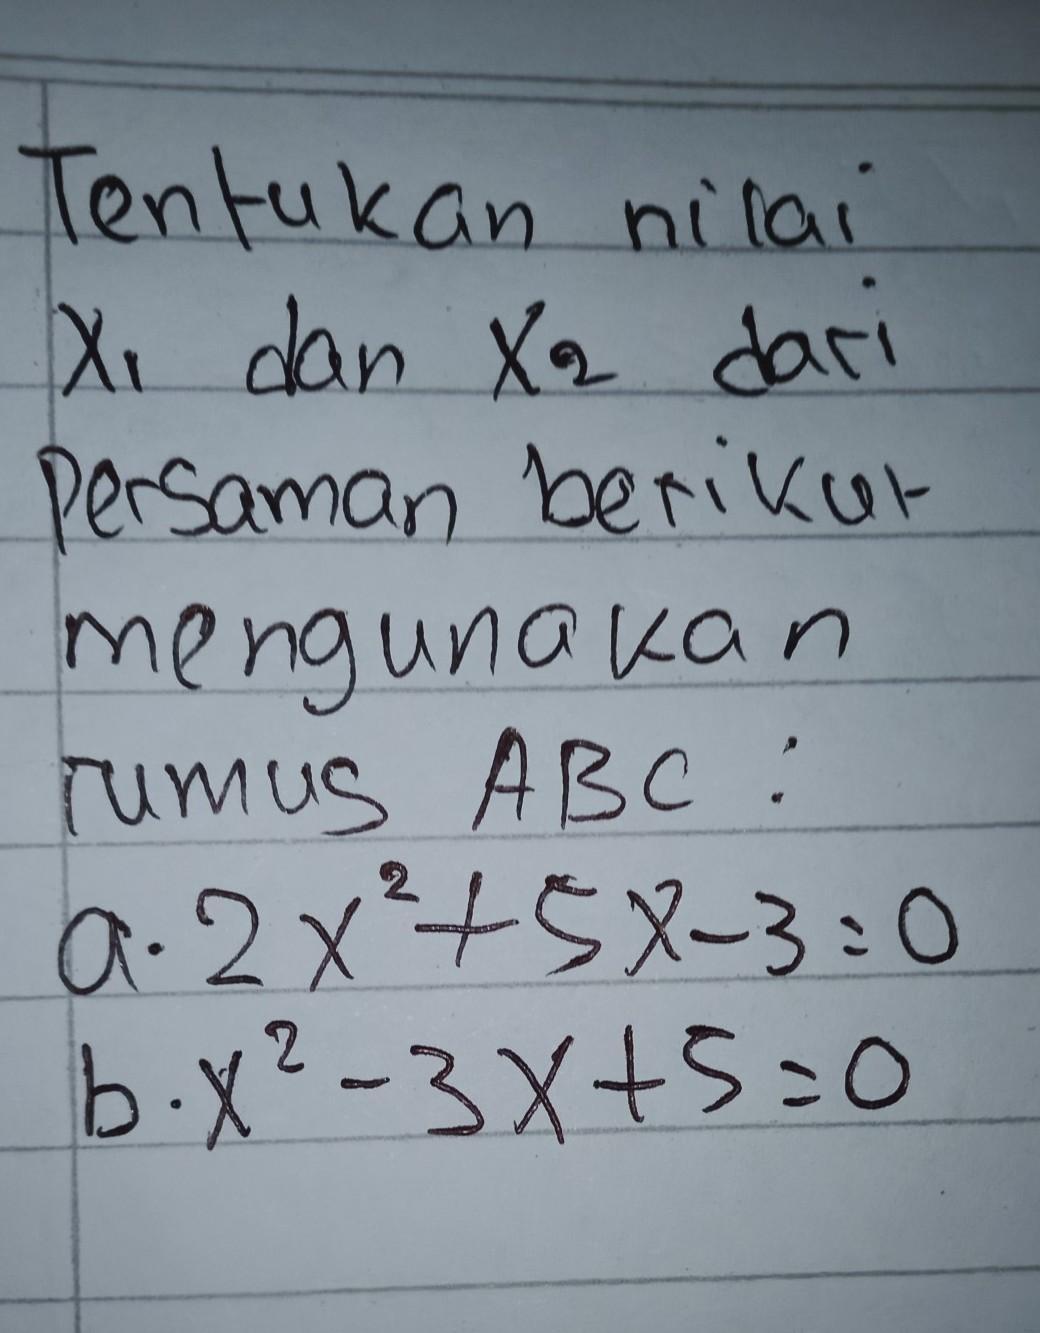 Tentukan nilai
X₁ dan X₂ dari
Persaman berikut
mengunakan
rumus ABC :
a. 2x² + 5x - 3 = 0
b. x² - 3x + 5 = 0